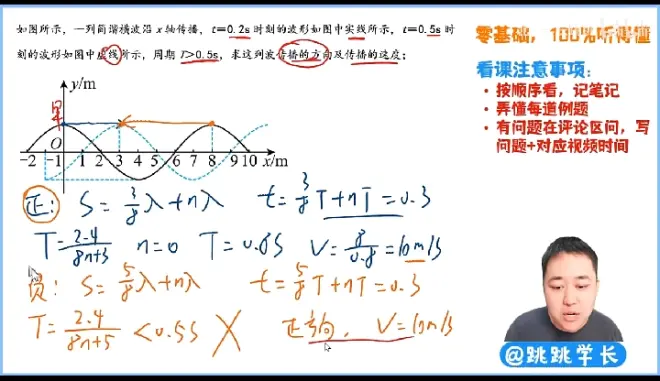 如图所示，一列简谐横波沿 x 轴传播，t=0.2s 时刻的波形如图中实线所示，t=0.5s 时
刻的波形如图中虚线所示，周期 T>0.5s，求这列波传播的方向及传播的速度；
零基础，100%听得懂
看课注意事项：
• 按顺序看，记笔记
• 弄懂每道例题
• 有问题在评论区问，写
问题+对应视频时间
y/m
O
-2 -1 1 2 3 4 5 6 7 8 9 10 x/m
正： S=3/8λ+nλ t=3/8T+nT=0.3
T=2.4/8n+3 n=0 T=0.8S V=8/0.8=10m/s
负： S=5/8λ+nλ t=5/8T+nT=0.3
T=2.4/8n+5 <0.5S X 正方向， V=10m/s
@跳跳学长